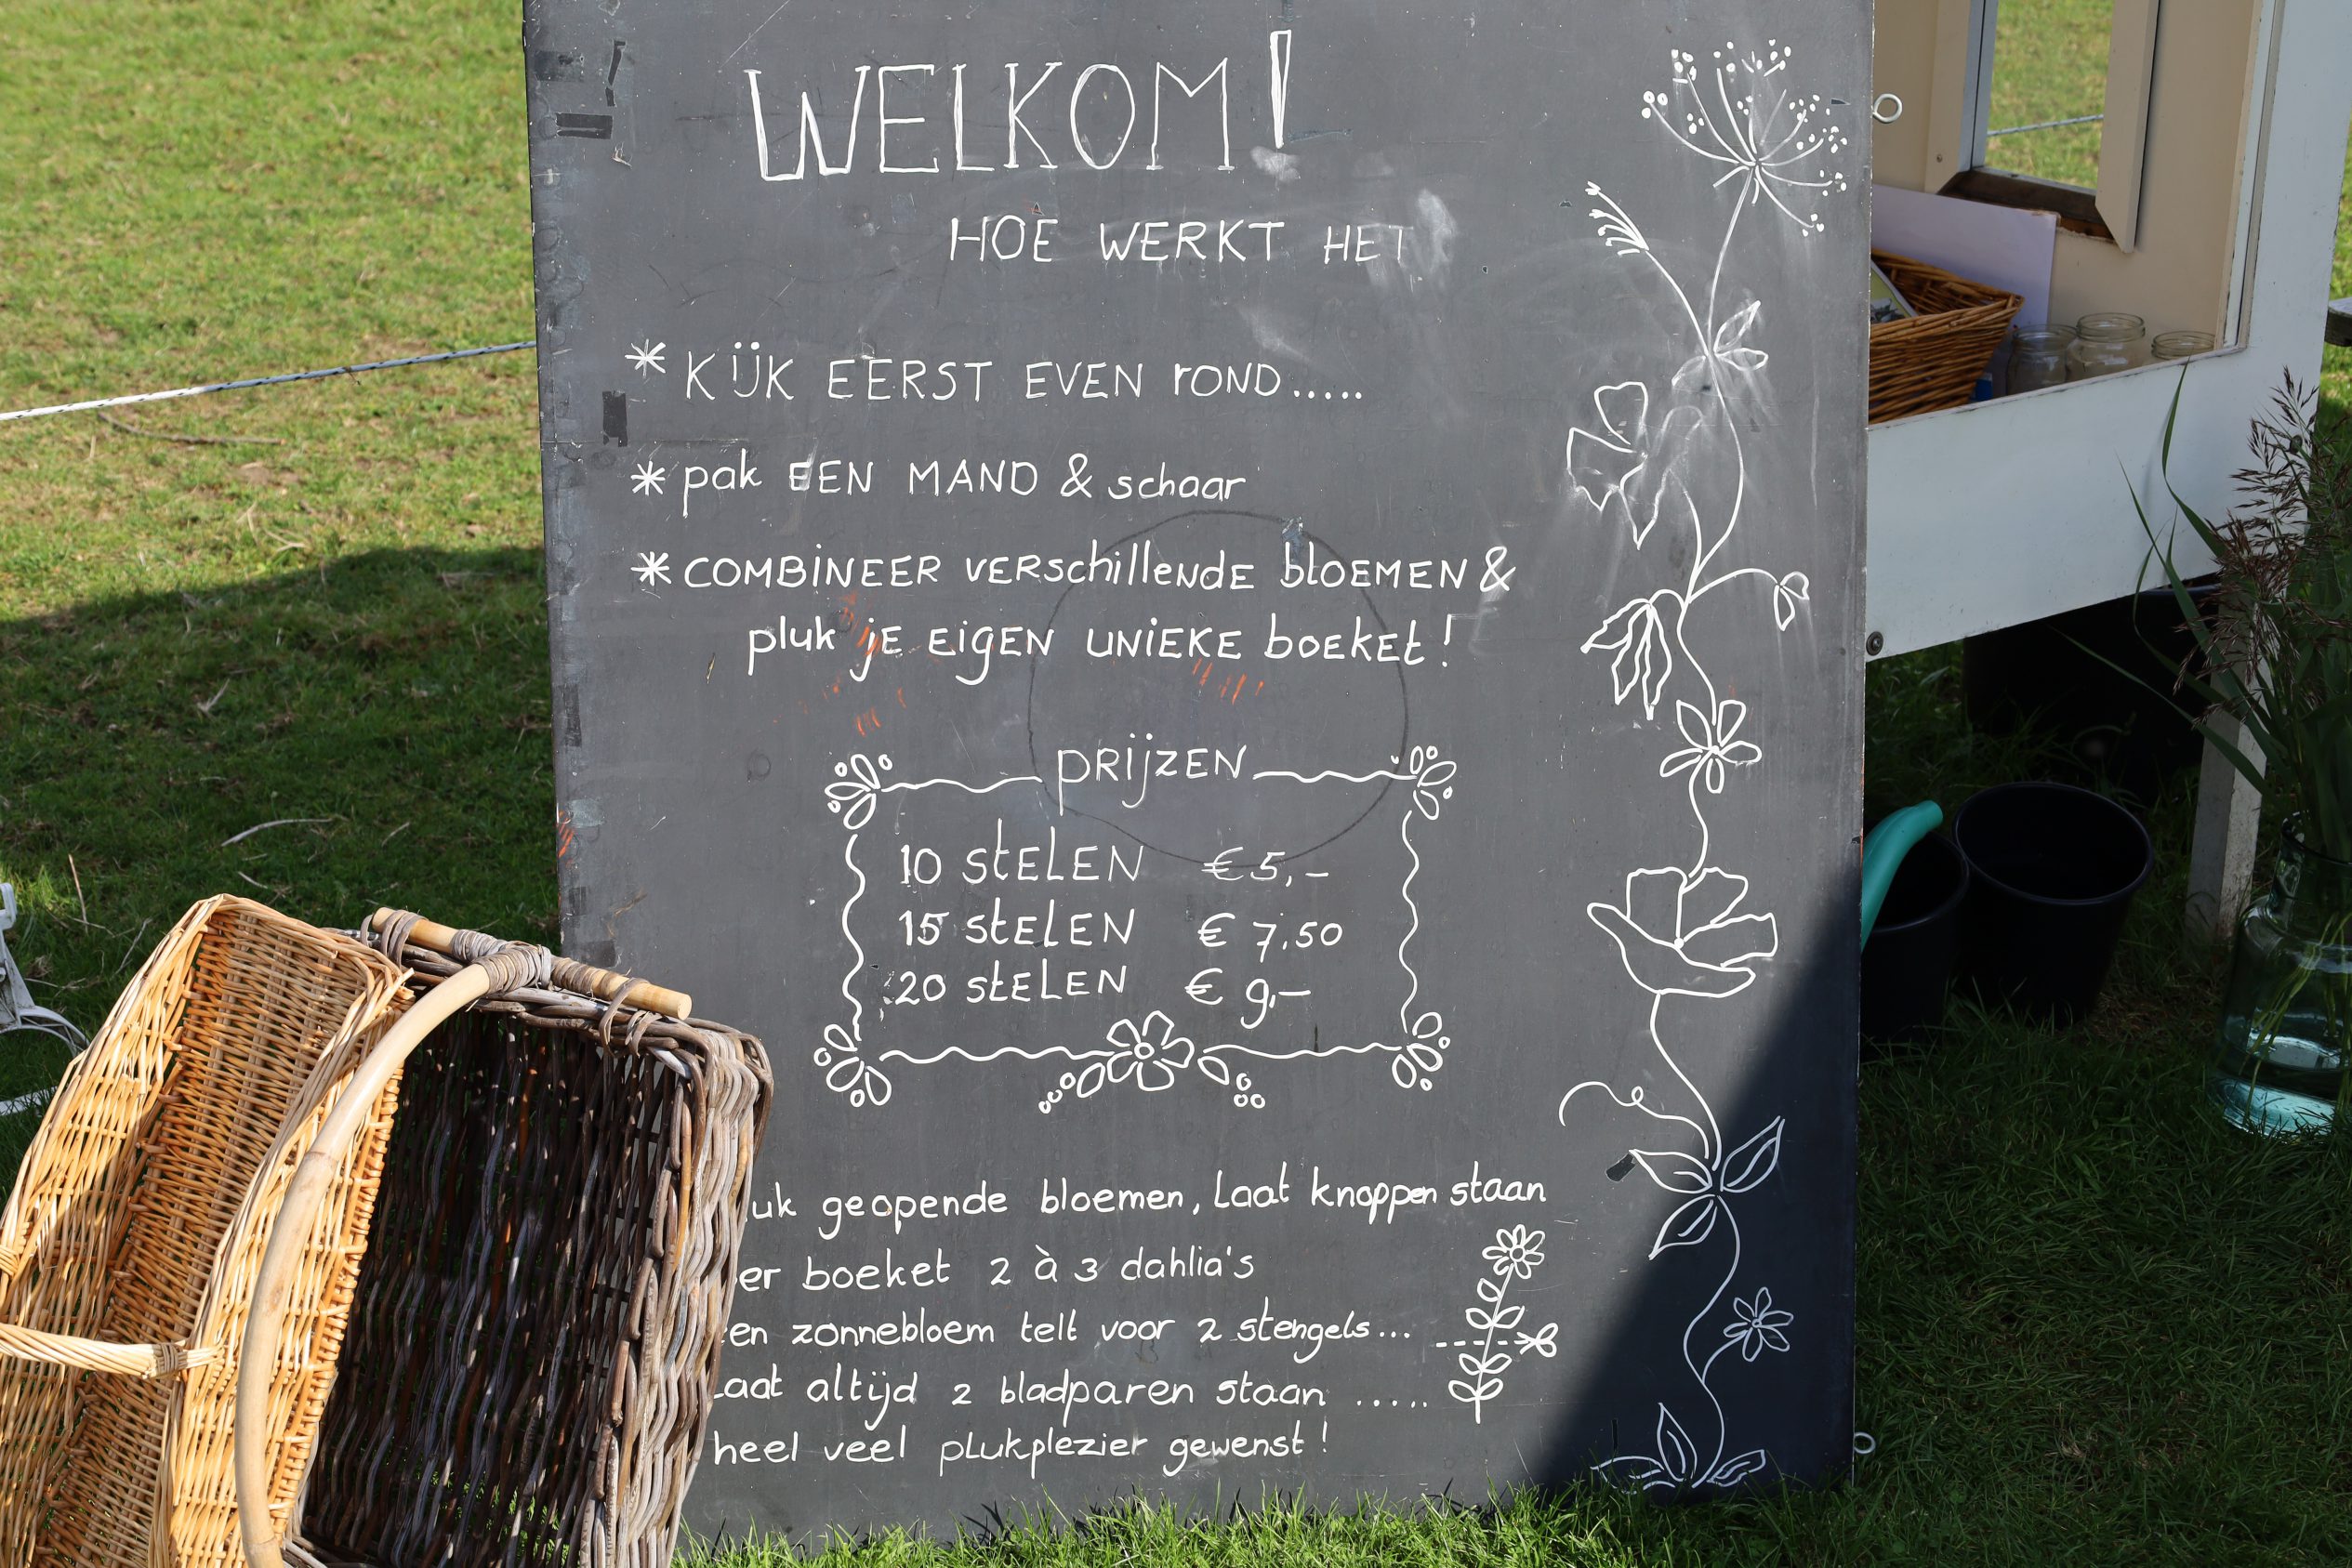 WELKOM!
HOE WERKT HET
* KIJK EERST EVEN ROND.....
* pak EEN MAND & schaar
* COMBINEER VERSchillende bloEMEN &
pluk je EigEN UNIEKE boEKEt!
PRIJZEN
10 StElEN € 5,-
15 StElEN € 7,50
20 StELEN € 9,-
geopende bloemen, Laat knoppen staan
boeket 2 à 3 dahlia's
zonnebloem telt voor 2 stengels...
Laat altijd 2 bladparen staan .....
heel veel plukplezier gewenst!